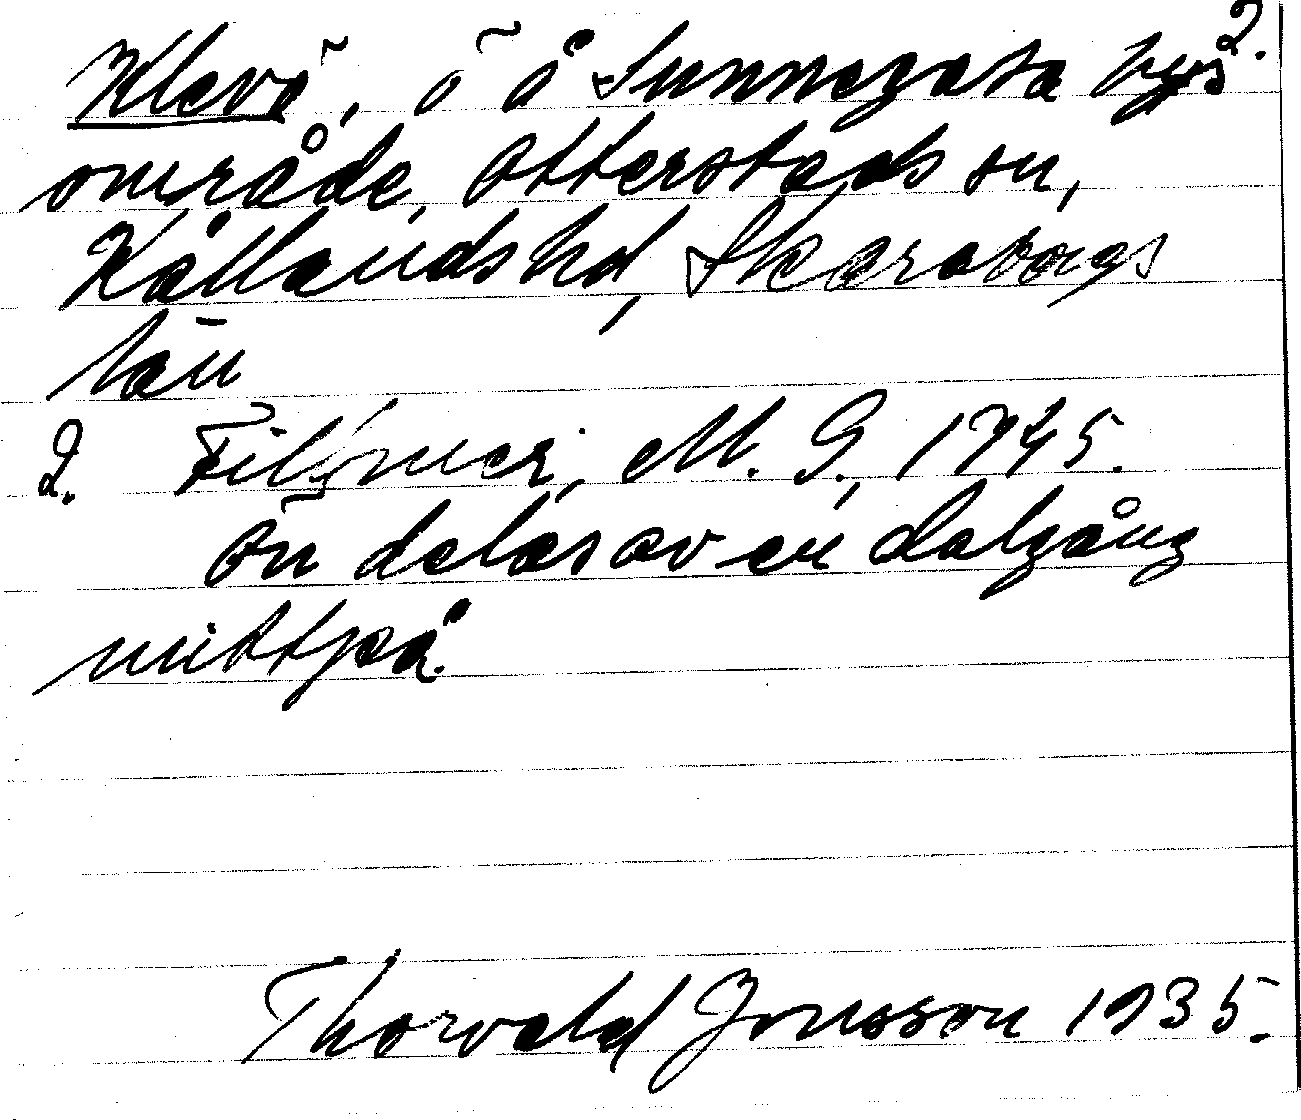 2.
Klevö, ö å Sunnegata bys
område, Otterstads sn,
Kållands hd, Skaraborgs
län
2. Filmer, M. G., 1745.
Ön delas av en dalgång
mittpå.
Thorvald Jonsson 1935.